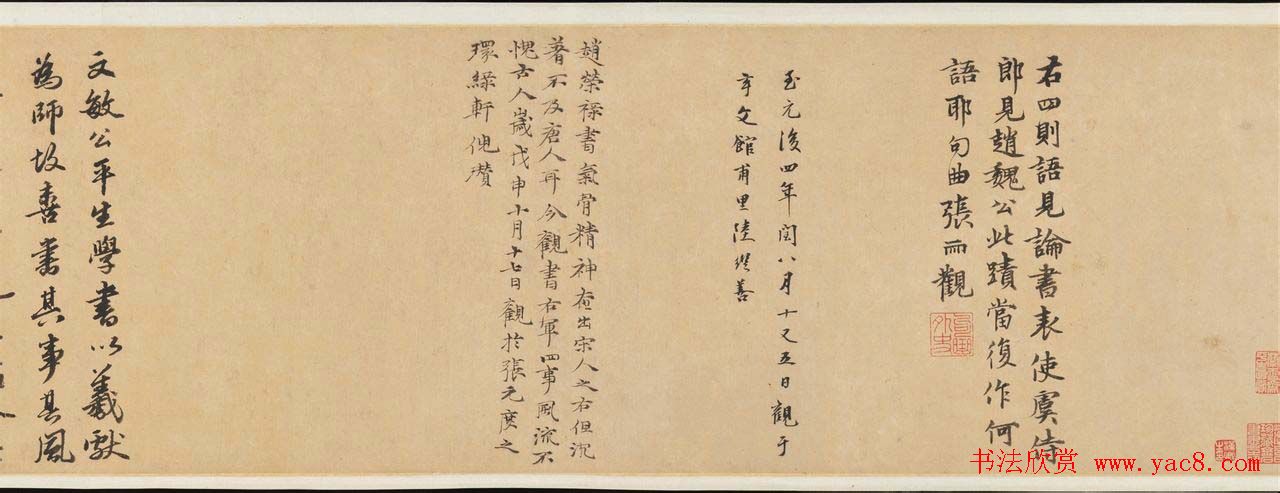 右四則語見論書表使虞侍
郎見趙魏公此蹟當復作何
語耶句曲張雨觀
至元後四年閏八月十又五日觀于
文館甫里陸繼善
趙榮祿書氣骨精神奄出宋人之右但沉
著不及唐人耳今觀書右軍四事風流不
愧古人歲戊申十月十七日觀於張元度之
環綠軒倪瓚
文敏公平生學書以羲獻
為師故喜書其事其風
书法欣赏 www.yac8.com